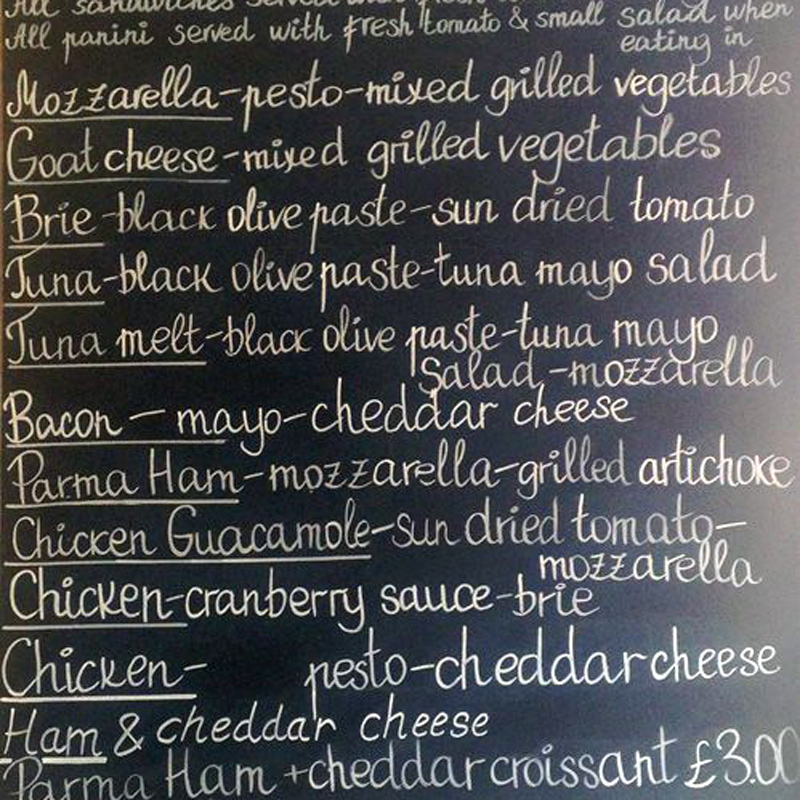 All sandwiches served with fresh
All panini served with fresh tomato & small salad when
eating in
Mozzarella-pesto-mixed grilled vegetables
Goat cheese-mixed grilled vegetables
Brie-black olive paste-sun dried tomato
Tuna-black olive paste-tuna mayo salad
Tuna melt-black olive paste-tuna mayo
Salad-mozzarella
Bacon-mayo-cheddar cheese
Parma Ham-mozzarella-grilled artichoke
Chicken Guacamole-sun dried tomato-
mozzarella
Chicken-cranberry sauce-brie
Chicken- pesto-cheddar cheese
Ham & cheddar cheese
Parma Ham+cheddar croissant £3.00